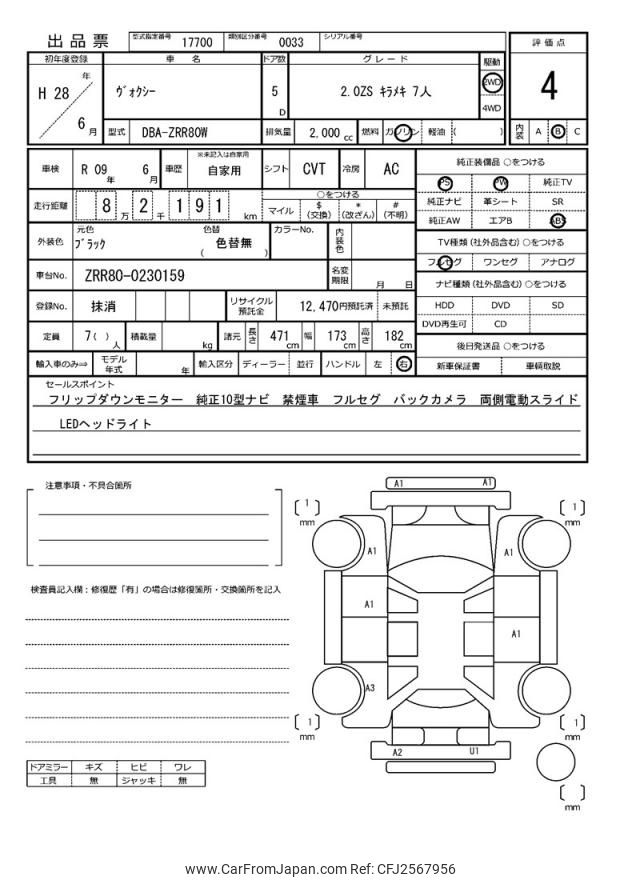 出品票 型式指定番号 17700 類別区分番号 0033 シリアル番号
評価点
4
内装 A B C
初年度登録 車名 ドア数 グレード 駆動
H 28 年 6 月 ヴォクシー 5 D 2.0ZS ｷﾗﾒｷ 7人 2WD 4WD
型式 DBA-ZRR80W 排気量 2,000 cc 燃料 ガソリン 軽油 ( )
車検 R 09 年 6 月 車歴 ※未記入は自家用 自家用 シフト CVT 冷房 AC
走行距離 8 万 2 千 1 9 1 km ○をつける
マイル $ (交換) * (改ざん) # (不明)
外装色 元色 ﾌﾞﾗｯｸ 色替 ( 色替無 ) カラーNo. 内装色
車台No. ZRR80-0230159 名変期限 月 日
登録No. 抹消 リサイクル預託金 12,470円預託済 未預託
定員 7( ) 人 積載量 kg 諸元 長さ 471 cm 幅 173 cm 高さ 182 cm
輸入車のみ⇒ モデル年式 年 輸入区分 ディーラー 並行 ハンドル 左 右
純正装備品 ○をつける
PS PW 純正TV
純正ナビ 革シート SR
純正AW エアB ABS
TV種類 (社外品含む) ○をつける
フルセグ ワンセグ アナログ
ナビ種類 (社外品含む) ○をつける
HDD DVD SD
DVD再生可 CD
後日発送品 ○をつける
新車保証書 車輌取説
セールスポイント
フリップダウンモニター 純正10型ナビ 禁煙車 フルセグ バックカメラ 両側電動スライド
LEDヘッドライト
注意事項・不具合箇所
検査員記入欄：修復歴「有」の場合は修復箇所・交換箇所を記入
ドアミラー キズ ヒビ ワレ
工具 無 ジャッキ 無
A1 A1
〔 1 〕 mm 〔 1 〕 mm
A1 A1
A1
A1
A3
〔 1 〕 mm 〔 1 〕 mm
A2 U1
〔 〕 mm
www.CarFromJapan.com Ref: CFJ2567956